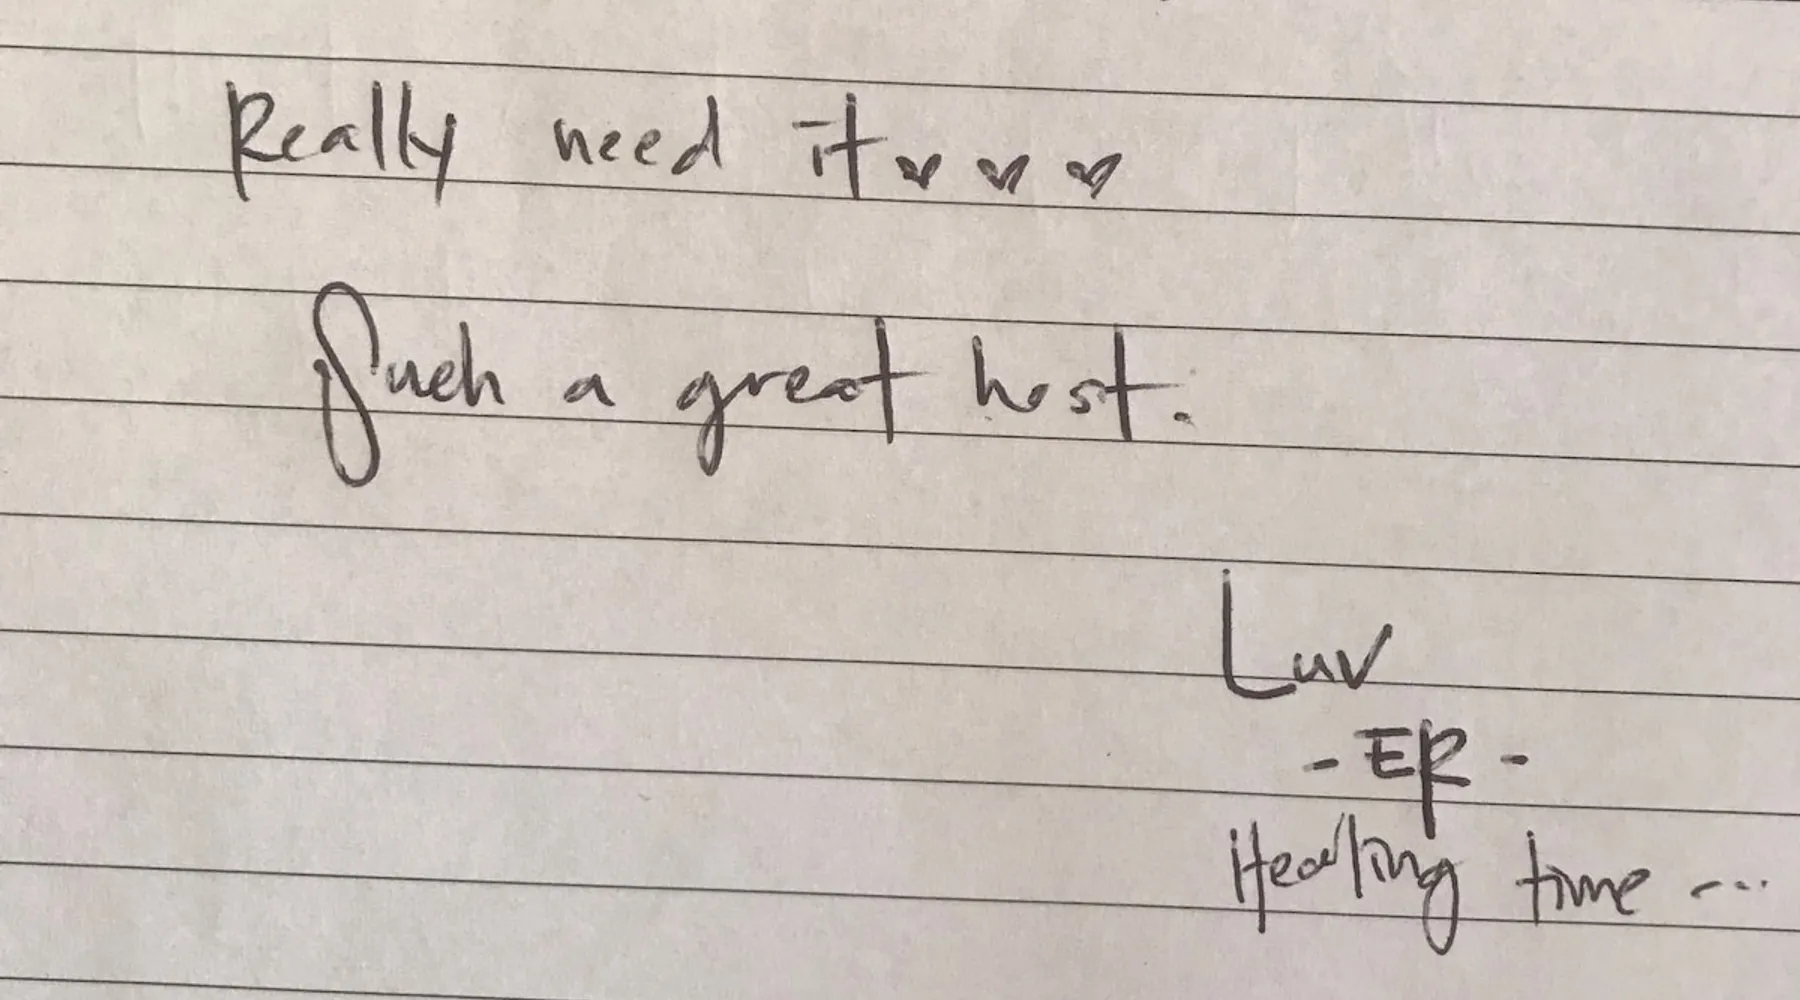 Really need it♥♥♥
Such a great host.
Luv
-ER-
Healing time ...